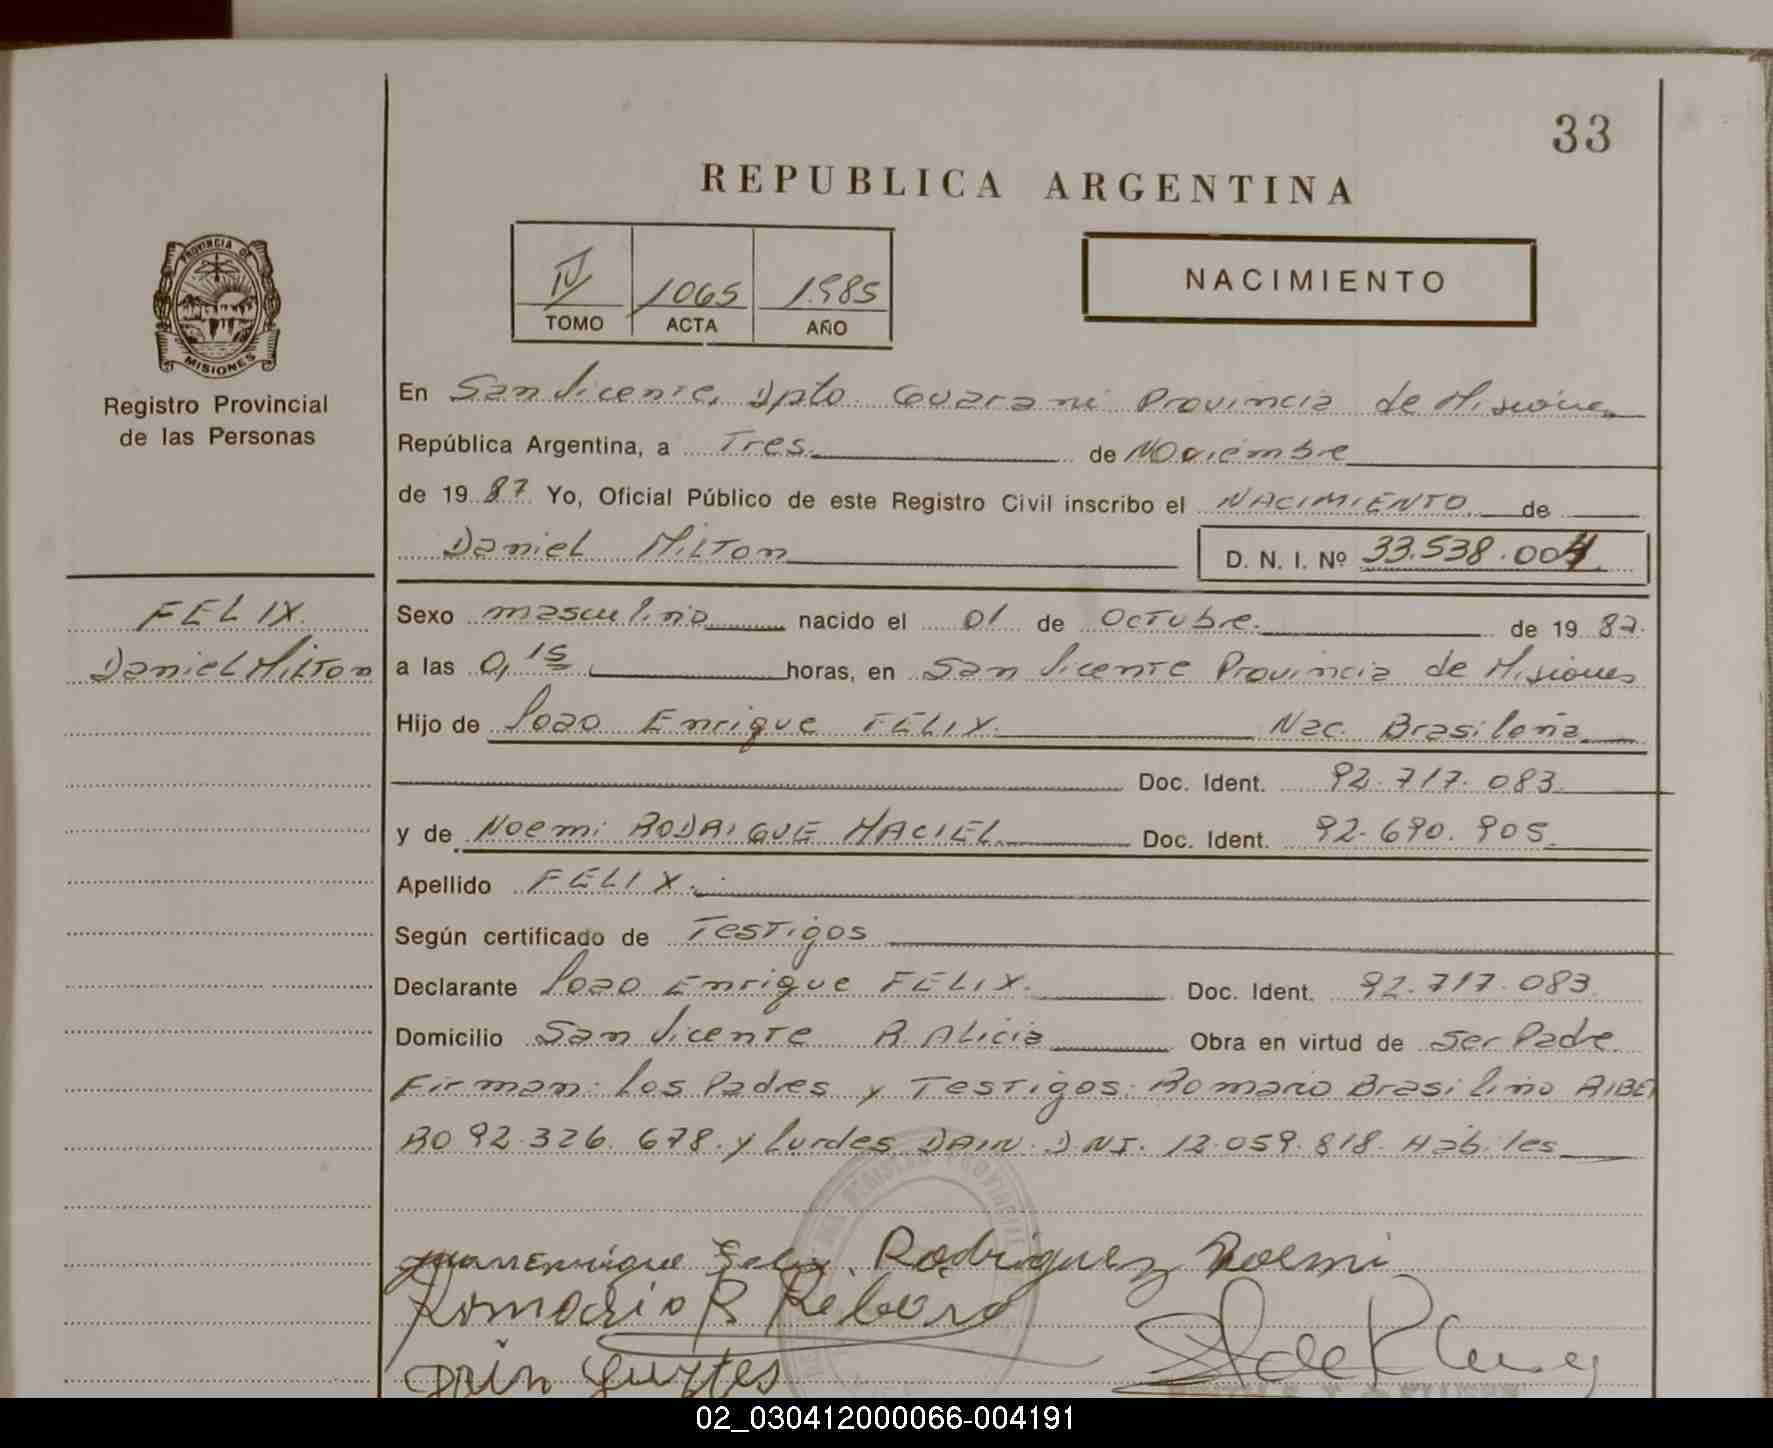 33
REPUBLICA ARGENTINA
IV 1065 1.985
TOMO ACTA AÑO
NACIMIENTO
PROVINCIA DE
MISIONES
Registro Provincial
de las Personas
En San Vicente, Dpto. Guarani Provincia de Misiones
República Argentina, a Tres de Noviembre
de 19 87 Yo, Oficial Público de este Registro Civil inscribo el NACIMIENTO de
Daniel Milton D. N. I. Nº 33.538.004
FELIX.
Daniel Milton
Sexo masculino nacido el 01 de Octubre. de 19 87.
a las 0,15 horas, en San Vicente Provincia de Misiones
Hijo de Joao Enrique FELIX. Nac. Brasileña
Doc. Ident. 92.717.083
y de Noemi RODRIGUE MACIEL Doc. Ident. 92.690.905
Apellido FELIX.
Según certificado de Testigos
Declarante Joao Enrique FELIX. Doc. Ident. 92.717.083
Domicilio San Vicente R. Alicia Obra en virtud de Ser Padre
Firman: Los Padres y Testigos: Romario Brasilino RIBEI
RO 92.326.678. y Lurdes DAIN. D.NI. 12.059.818. Hábiles
Rodriguez Noemi
Romario R Ribeiro
02_030412000066-004191